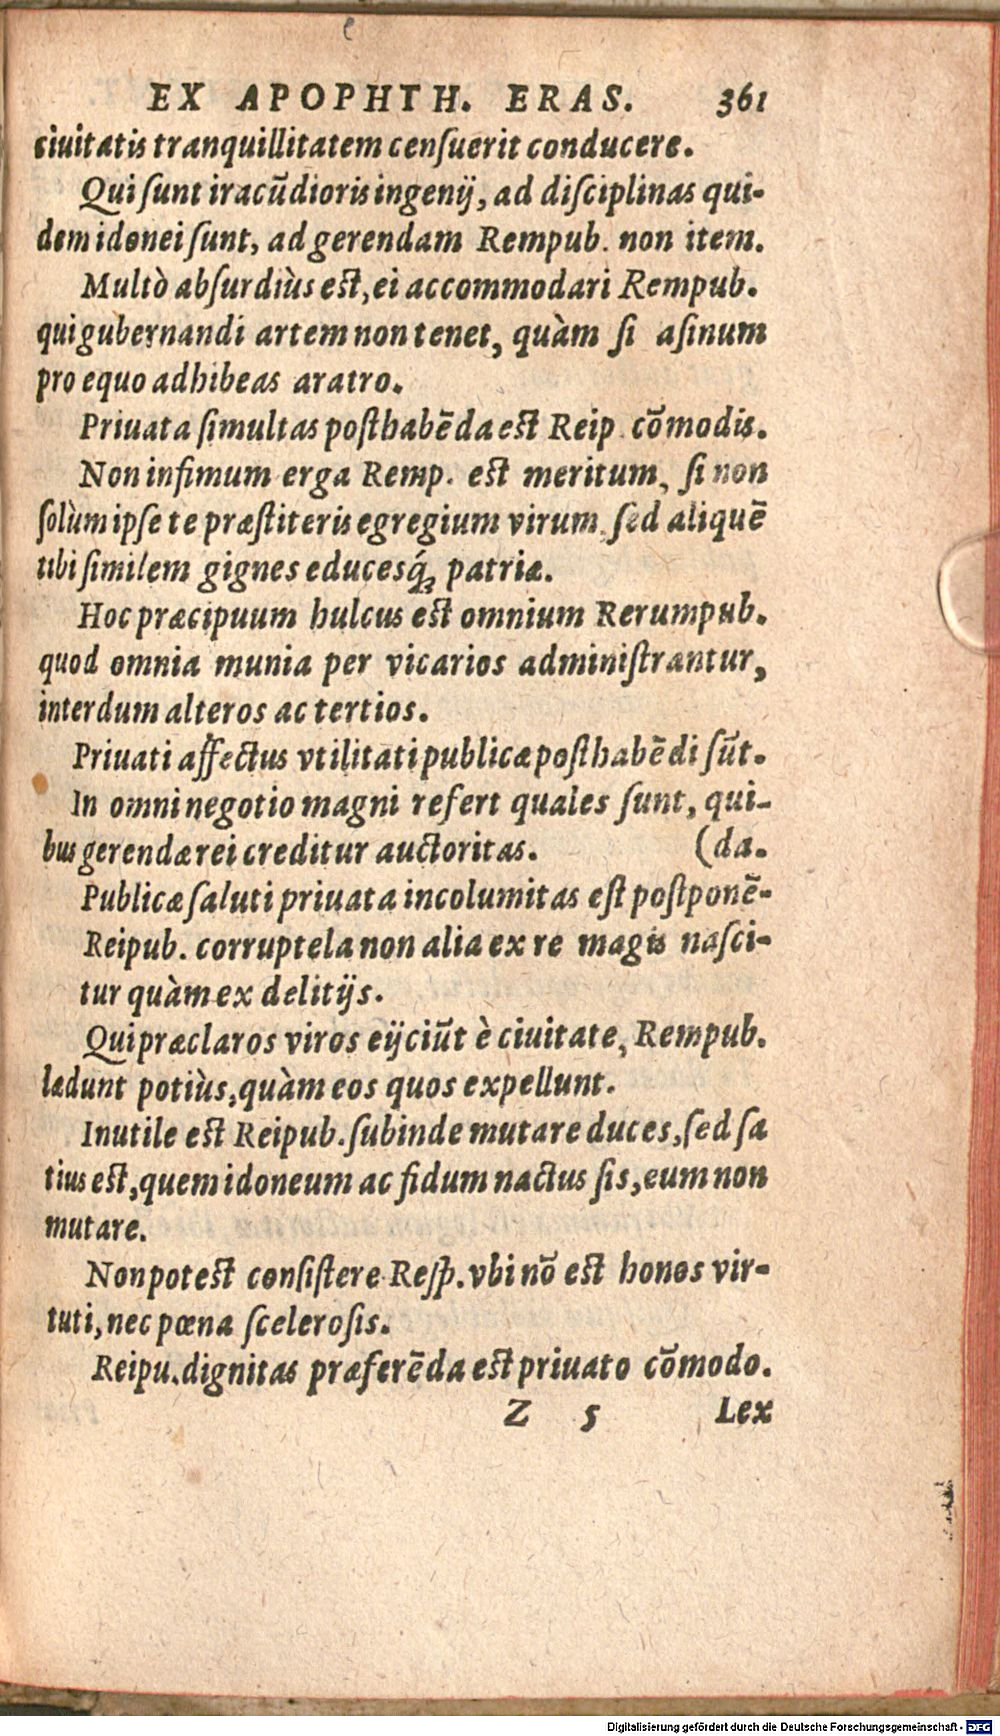 EX APOPHTH. ERAS. 361
ciuitatis tranquillitatem cenſuerit conducere.
Qui ſunt iracūdioris ingenij, ad diſciplinas qui-
dem idonei ſunt, ad gerendam Rempub. non item.
Multò abſurdiùs est, ei accommodari Rempub.
qui gubernandi artem non tenet, quàm ſi aſinum
pro equo adhibeas aratro.
Priuata ſimultas poſthabēda est Reip. cōmodis.
Non infimum erga Remp. est meritum, ſi non
ſolùm ipſe te præſtiteris egregium virum, ſed aliquē
tibi ſimilem gignes educesq́; patriæ.
Hoc præcipuum hulcus est omnium Rerumpub.
quod omnia munia per vicarios adminiſtrantur,
interdum alteros ac tertios.
Priuati affectus vtilitati publicæ poſthabēdi ſūt.
In omni negotio magni refert quales ſunt, qui-
bus gerendæ rei creditur auctoritas. (da.
Publicæ ſaluti priuata incolumitas eſt poſtponē-
Reipub. corruptela non alia ex re magis naſci-
tur quàm ex delitijs.
Qui præclaros viros eijciūt è ciuitate, Rempub.
lædunt potiùs, quàm eos quos expellunt.
Inutile est Reipub. ſubinde mutare duces, ſed ſa
tius est, quem idoneum ac fidum nactus ſis, eum non
mutare.
Non potest conſiſtere Reſp. vbi nō est honos vir-
tuti, nec pœna ſceleroſis.
Reipu. dignitas præferēda est priuato cōmodo.
Z 5 Lex
Digitalisierung gefördert durch die Deutsche Forschungsgemeinschaft - DFG